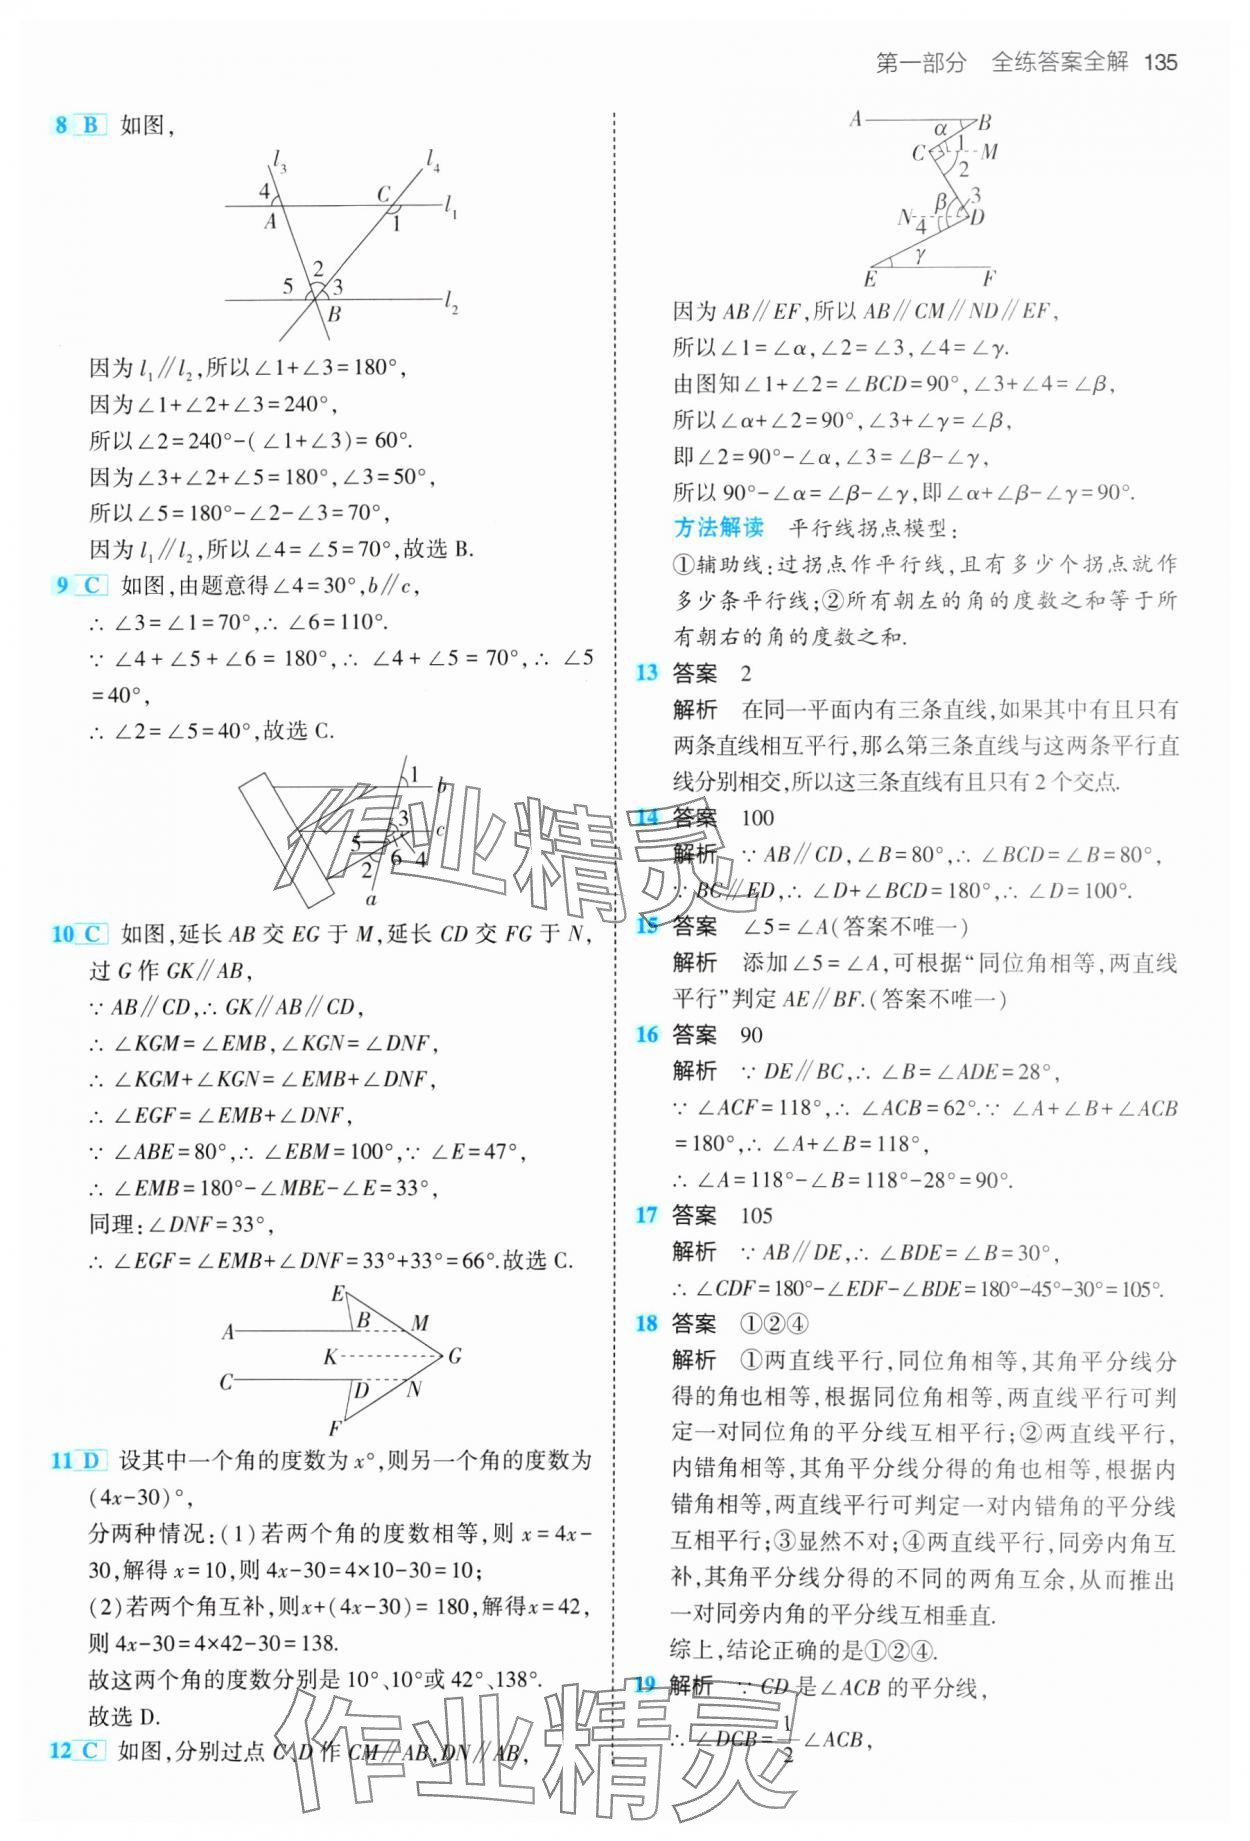 第一部分 全练答案全解 135
8 B 如图,
l₃ l₄
4 C
A 1 l₁
2
5 3
B l₂
因为 l₁∥l₂,所以∠1+∠3=180°,
因为∠1+∠2+∠3=240°,
所以∠2=240°-(∠1+∠3)=60°.
因为∠3+∠2+∠5=180°,∠3=50°,
所以∠5=180°-∠2-∠3=70°,
因为 l₁∥l₂,所以∠4=∠5=70°,故选 B.
9 C 如图,由题意得∠4=30°,b∥c,
∴ ∠3=∠1=70°,∴ ∠6=110°.
∵ ∠4+∠5+∠6=180°,∴ ∠4+∠5=70°,∴ ∠5
=40°,
∴ ∠2=∠5=40°,故选 C.
1 b
3 c
5 6 4
2
a
10 C 如图,延长 AB 交 EG 于 M,延长 CD 交 FG 于 N,
过 G 作 GK∥AB,
∵ AB∥CD,∴ GK∥AB∥CD,
∴ ∠KGM=∠EMB,∠KGN=∠DNF,
∴ ∠KGM+∠KGN=∠EMB+∠DNF,
∴ ∠EGF=∠EMB+∠DNF,
∵ ∠ABE=80°,∴ ∠EBM=100°,∵ ∠E=47°,
∴ ∠EMB=180°-∠MBE-∠E=33°,
同理:∠DNF=33°,
∴ ∠EGF=∠EMB+∠DNF=33°+33°=66°.故选 C.
E
A B M
K G
C D N
F
11 D 设其中一个角的度数为 x°,则另一个角的度数为
(4x-30)°,
分两种情况:(1)若两个角的度数相等,则 x=4x-
30,解得 x=10,则 4x-30=4×10-30=10;
(2)若两个角互补,则x+(4x-30)=180,解得x=42,
则 4x-30=4×42-30=138.
故这两个角的度数分别是 10°、10°或 42°、138°.
故选 D.
12 C 如图,分别过点 C、D 作 CM∥AB,DN∥AB,
A α B
C 1 M
2
β 3
N 4 D
γ
E F
因为 AB∥EF,所以 AB∥CM∥ND∥EF,
所以∠1=∠α,∠2=∠3,∠4=∠γ.
由图知∠1+∠2=∠BCD=90°,∠3+∠4=∠β,
所以∠α+∠2=90°,∠3+∠γ=∠β,
即∠2=90°-∠α,∠3=∠β-∠γ,
所以 90°-∠α=∠β-∠γ,即∠α+∠β-∠γ=90°.
方法解读 平行线拐点模型:
①辅助线:过拐点作平行线,且有多少个拐点就作
多少条平行线;②所有朝左的角的度数之和等于所
有朝右的角的度数之和.
13 答案 2
解析 在同一平面内有三条直线,如果其中有且只有
两条直线相互平行,那么第三条直线与这两条平行直
线分别相交,所以这三条直线有且只有 2 个交点.
14 答案 100
解析 ∵ AB∥CD,∠B=80°,∴ ∠BCD=∠B=80°,
∵ BC∥ED,∴ ∠D+∠BCD=180°,∴ ∠D=100°.
15 答案 ∠5=∠A(答案不唯一)
解析 添加∠5=∠A,可根据“同位角相等,两直线
平行”判定 AE∥BF.(答案不唯一)
16 答案 90
解析 ∵ DE∥BC,∴ ∠B=∠ADE=28°,
∵ ∠ACF=118°,∴ ∠ACB=62°.∵ ∠A+∠B+∠ACB
=180°,∴ ∠A+∠B=118°,
∴ ∠A=118°-∠B=118°-28°=90°.
17 答案 105
解析 ∵ AB∥DE,∴ ∠BDE=∠B=30°,
∴ ∠CDF=180°-∠EDF-∠BDE=180°-45°-30°=105°.
18 答案 ①②④
解析 ①两直线平行,同位角相等,其角平分线分
得的角也相等,根据同位角相等,两直线平行可判
定一对同位角的平分线互相平行;②两直线平行,
内错角相等,其角平分线分得的角也相等,根据内
错角相等,两直线平行可判定一对内错角的平分线
互相平行;③显然不对;④两直线平行,同旁内角互
补,其角平分线分得的不同的两角互余,从而推出
一对同旁内角的平分线互相垂直.
综上,结论正确的是①②④.
19 解析 ∵ CD 是∠ACB 的平分线,
∴ ∠DCB=1/2∠ACB,
作业精灵
作业精灵